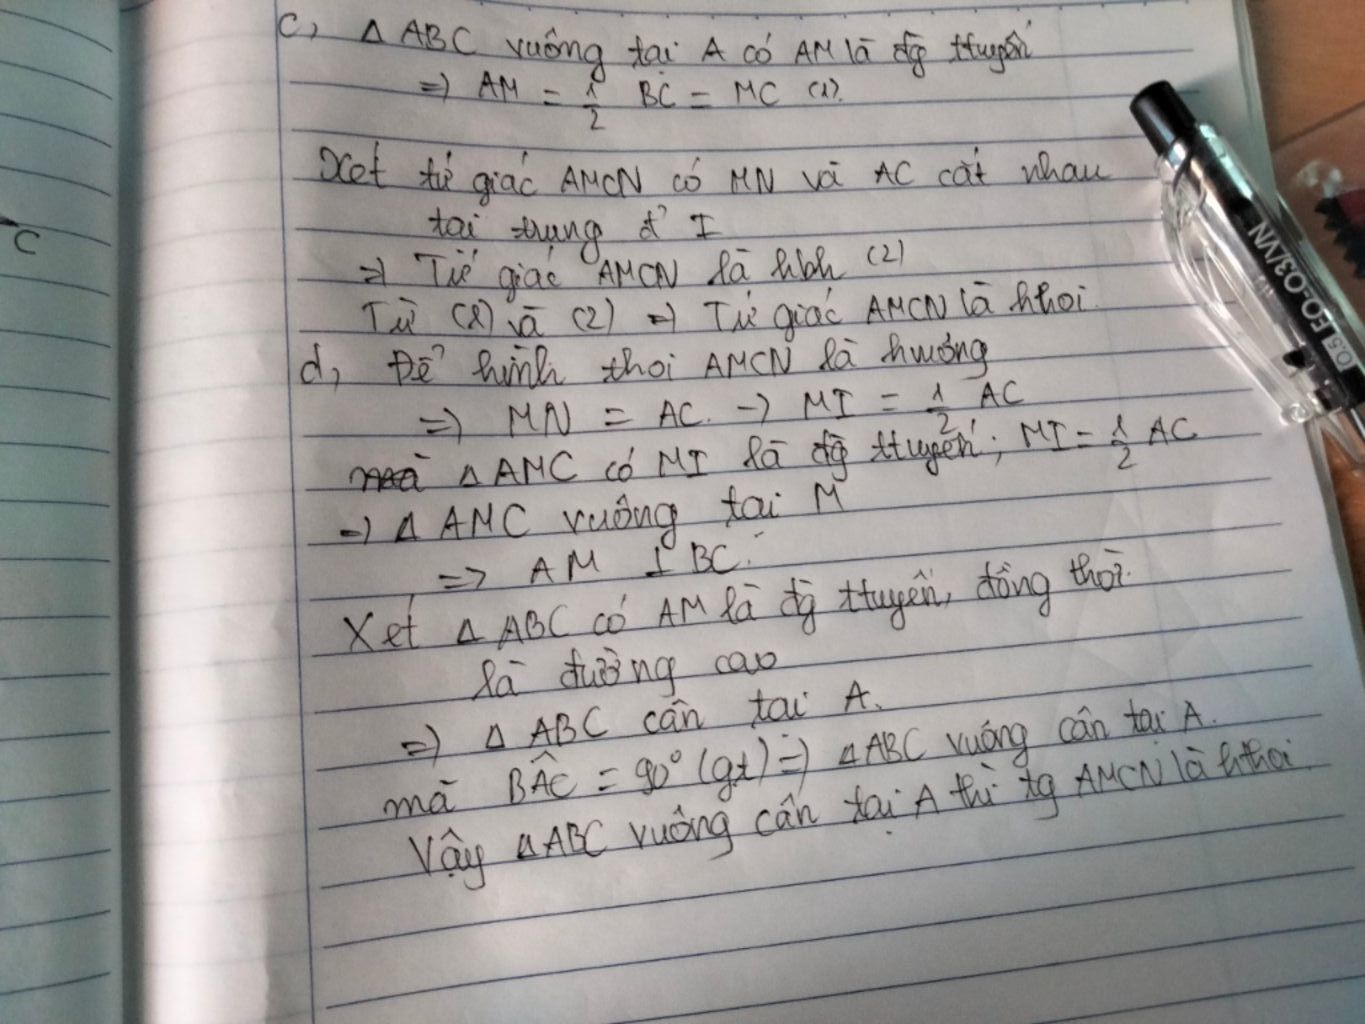 c, Δ ABC vuông tại A có AM là đg ttuyến
=> AM = 1/2 BC = MC (1).
Xét tứ giác AMCN có MN và AC cắt nhau
tại trung đ' I
=> Tứ giác AMCN là hbh (2)
Từ (1) và (2) => Tứ giác AMCN là hthoi.
d, Để hình thoi AMCN là hvuông
=> MN = AC. -> MI = 1/2 AC
mà Δ AMC có MI là đg ttuyến; MI = 1/2 AC
=> Δ AMC vuông tại M
=> AM ⊥ BC.
Xét Δ ABC có AM là đg ttuyến, đồng thời.
là đường cao
=> Δ ABC cân tại A.
mà BÂC = 90° (gt) => ΔABC vuông cân tại A.
Vậy ΔABC vuông cân tại A thì tg AMCN là hthoi
C
0.5 EO-03/VN